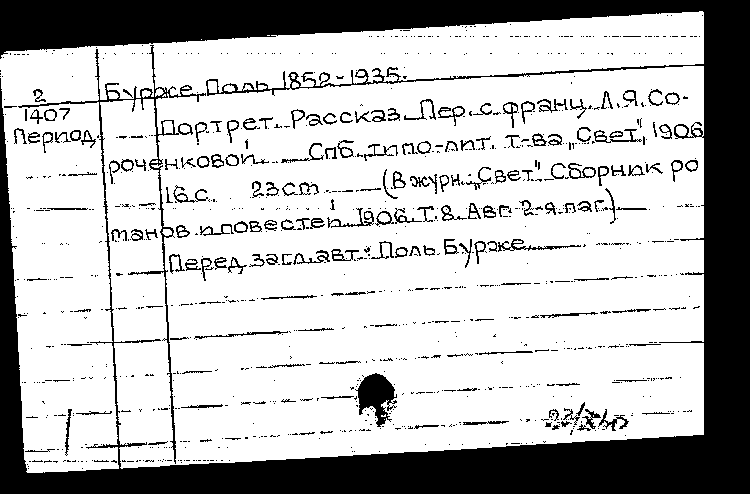 2
1407
Период.
Бурже, Поль, 1852-1935.
Портрет. Рассказ. Пер. с франц. Л.Я. Со-
роченковой. Спб., типо-лит. т-ва „Свет", 1906
16 с. 23 cm. (В журн.: „Свет". Сборник ро
манов и повестей. 1906. Т. 8. Авг. 2-я паг.)
Перед загл. авт.: Поль Бурже.